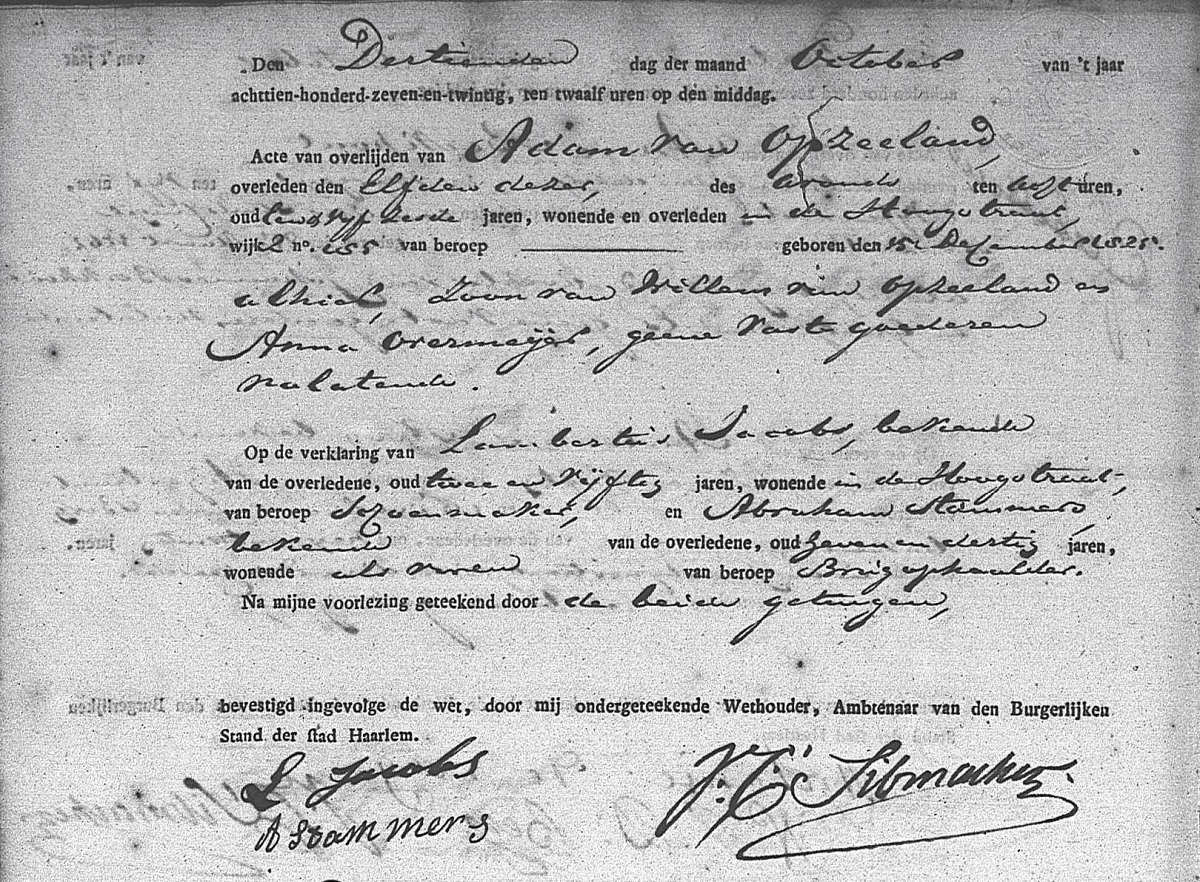 Den Dertienden dag der maand October van 't jaar
achttien-honderd-zeven-en-twintig, ten twaalf uren op den middag.
Acte van overlijden van Adam van Opzeeland,
overleden den Elfden dezer, des avonds ten acht uren,
oud jaren, wonende en overleden in de Hoogstraat,
wijk 2 no. 655 van beroep ——— geboren den 15 December 1825.
alhier, Zoon van Willem van Opzeeland en
Anna Overmeijer, geene vaste goederen
nalatende.
Op de verklaring van Lambertus Jacobs, bekende
van de overledene, oud twee en vijftig jaren, wonende in de Hoogstraat,
van beroep Schoenmaker, en Abraham Stammers,
bekende van de overledene, oud Zeven en dertig jaren,
wonende als voren van beroep Brugophaalder.
Na mijne voorlezing geteekend door de beide getuigen,
bevestigd ingevolge de wet, door mij ondergeteekende Wethouder, Ambtenaar van den Burgerlijken
Stand der stad Haarlem.
L Jacobs
A Stammers